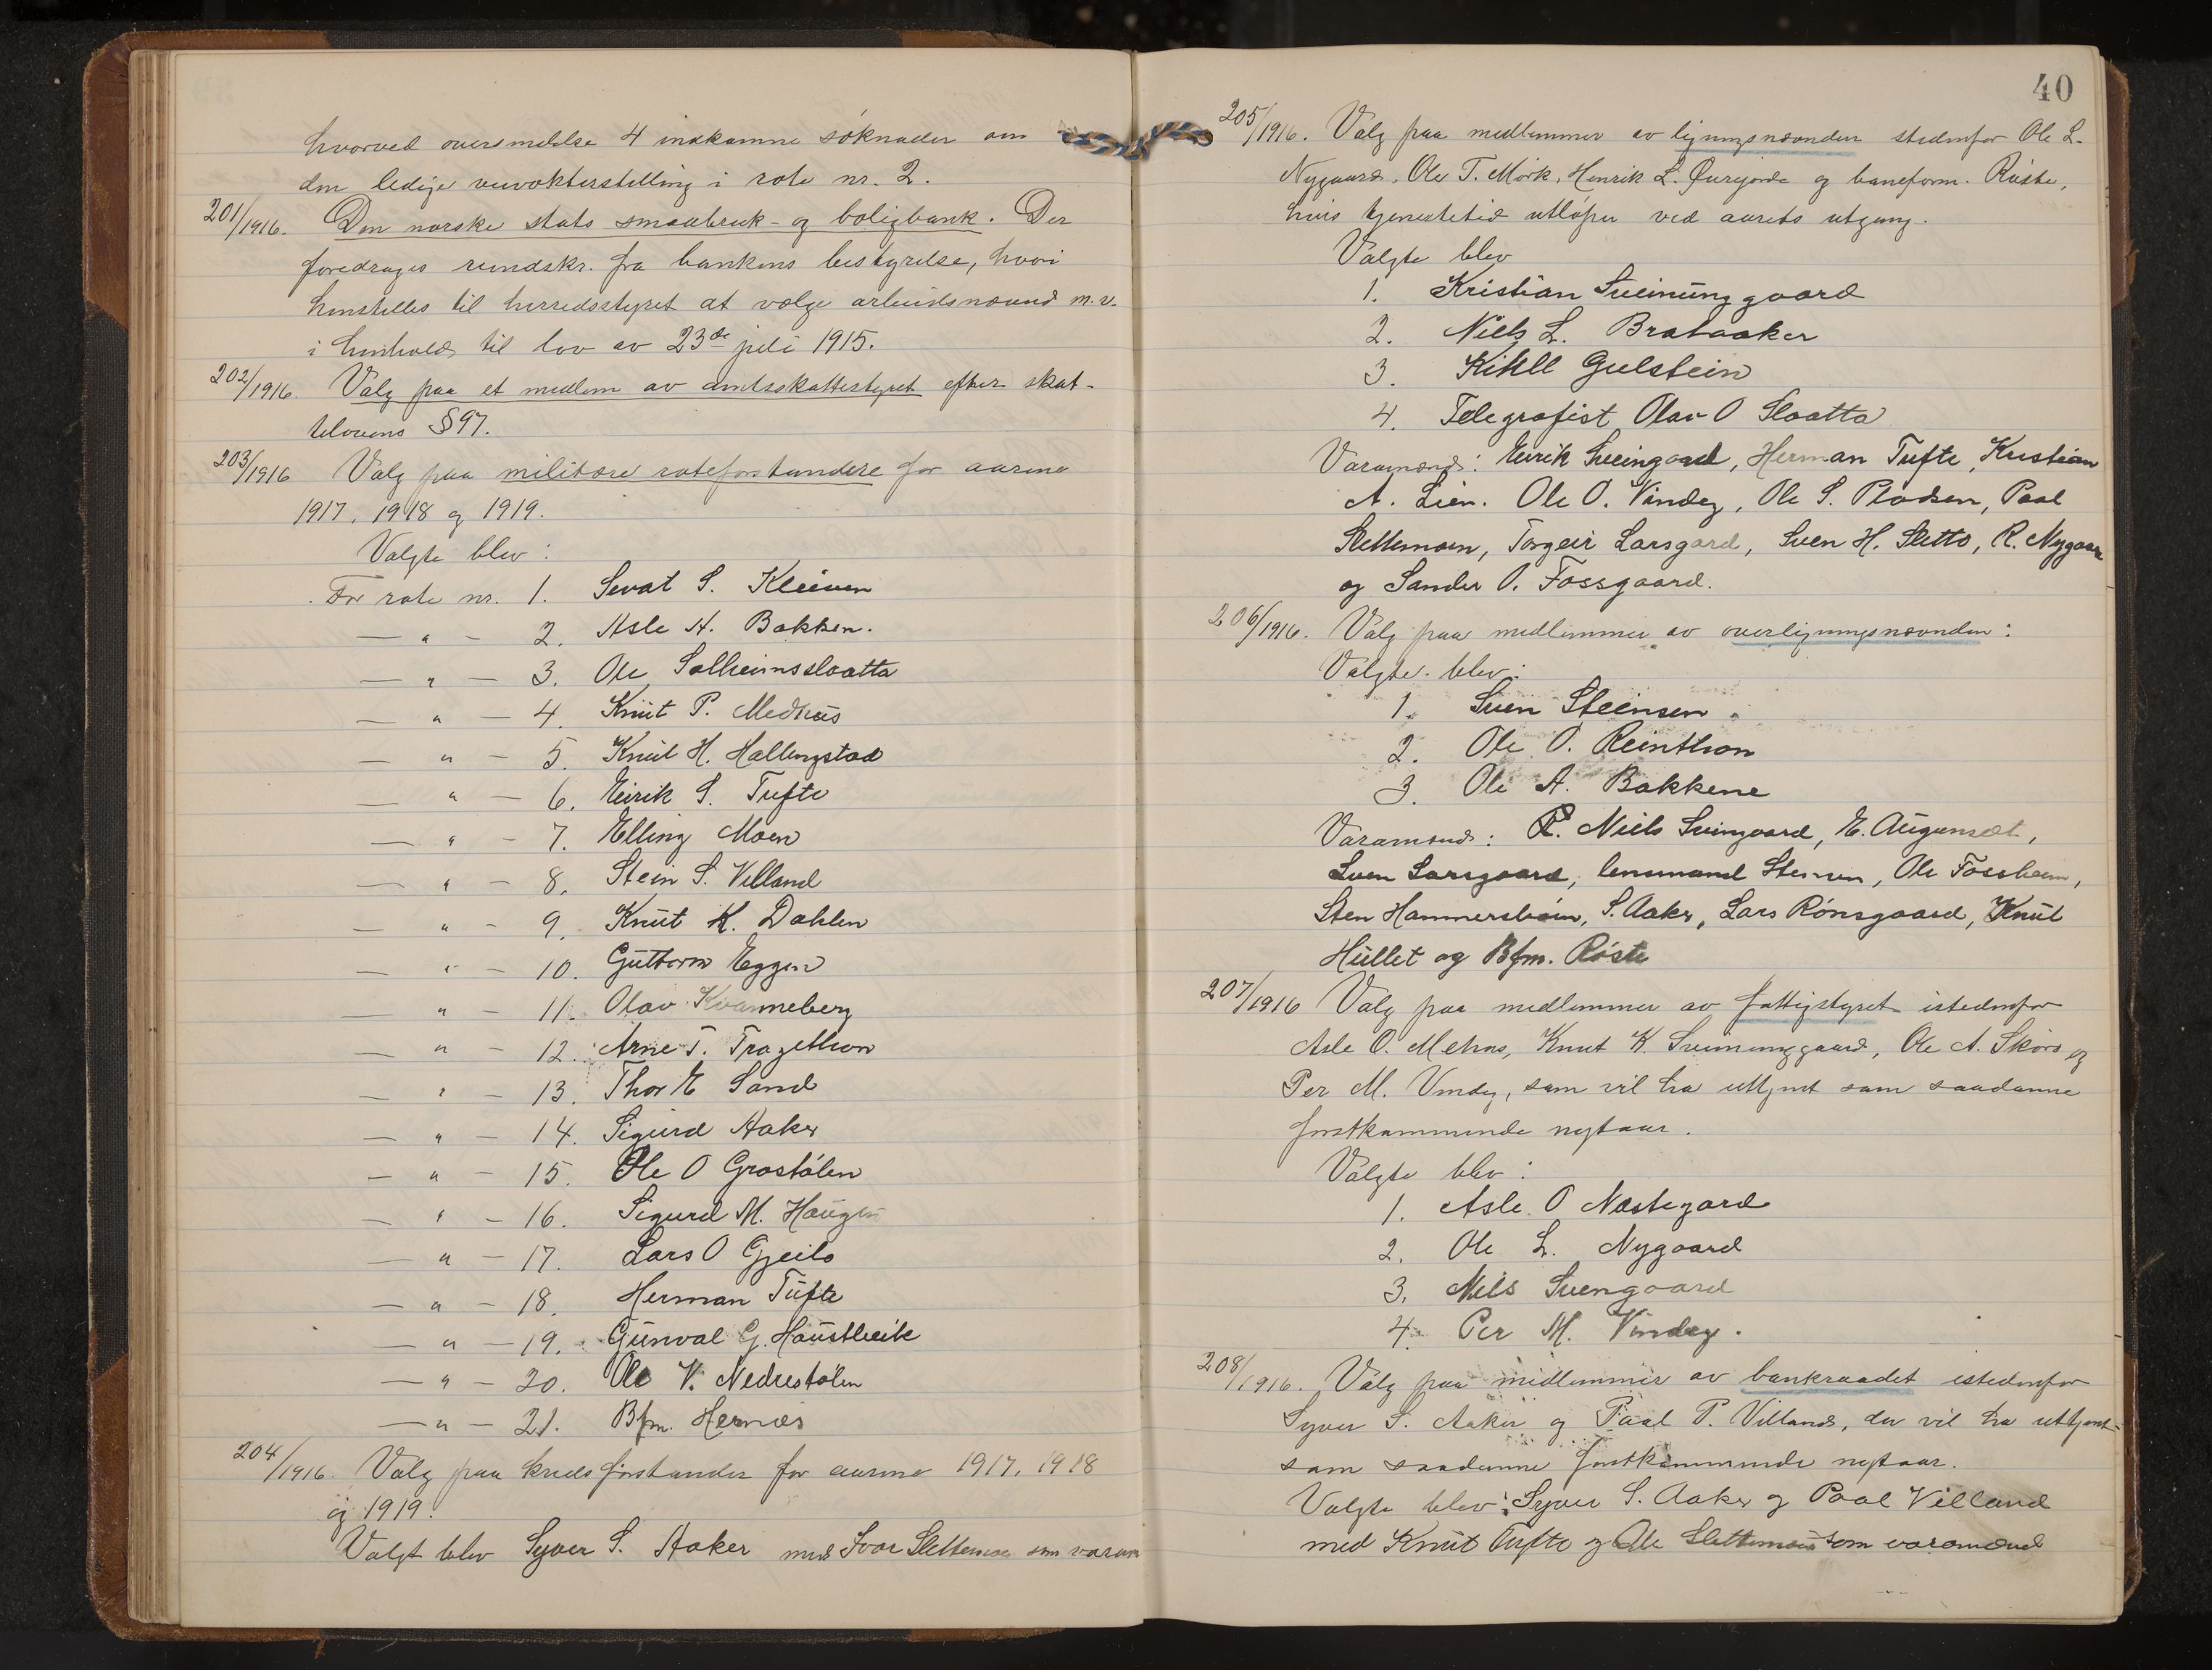 hvorved oversendelse 4 indkomne søknader om
den ledige veivokterstilling i rote nr. 2.
201/1916. Den norske stats smaabruk- og boligbank. Der
foredrages rundskr. fra bankens bestyrelse, hvori
henstilles til herredsstyret at vælge arbeidsnævnd m.v.
i henhold til lov av 23de juli 1915.
202/1916. Valg paa et medlem av amtsskattestyret efter skat-
telovens §97.
203/1916 Valg paa militære roteforstandere for aarene
1917, 1918 og 1919.
Valgte blev:
For rote nr. 1. Sevat S. Kleiven
— " — 2. Asle A. Bakken.
— " — 3. Ole Solheimsslaatta
— " — 4. Knut P. Medhus
— " — 5. Knut H. Hallingstad
— " — 6. Eirik S. Tufte
— " — 7. Elling Moen
— " — 8. Stein S. Villand
— " — 9. Knut K. Dahlen
— " — 10. Guttorm Eggen
— " — 11. Olav Kvanneberg
— " — 12. Arne T. Tragethon
— " — 13. Thor E Sand
— " — 14. Sigurd Aaker
— " — 15. Ole O Grøstølen
— " — 16. Sigurd M. Haugen
— " — 17. Lars O Gjeilo
— " — 18. Herman Tufte
— " — 19. Gunval G. Haustbeite
— " — 20. Ole V. Nedrestølen
— " — 21. Bfm. Hernæs
204/1916. Valg paa kredsforstander for aarene 1917, 1918
og 1919.
Valgt blev Syver S. Aaker med Ivar Slettemoen som varam
40
205/1916. Valg paa medlemmer av ligningsnævnden stedenfor Ole L.
Nygaard, Ole T. Mørk, Henrik L. Øvregorde og baneform. Røste,
hvis tjenestetid utløper ved aarets utgang.
Valgte blev
1. Kristian Sveinunggaard
2. Niels L. Brataaker
3. Kittil Gulstein
4. Telegrafist Olav O Slaatta
Varamænd: Eirik Sveingaard, Herman Tufte, Kristian
A. Lien. Ole O. Vindeg, Ole S. Pladsen, Paal
Slettemoen, Torgeir Larsgard, Sven H. Sletto, R. Nygaard
og Sander O. Fossgaard.
206/1916. Valg paa medlemmer av overligningsnævnden:
Valgte blev:
1. Sven Steinsen
2. Ole O. Reinthon
3. Ole A. Bakkene
Varamænd: P. Niels Sveingaard, E. Augunset,
Sven Larsgaard, lensmand Steinsen, Ole Fossheim,
Sten Hammersbøen, S. Aaker, Lars Rønsgaard, Knut
Hullet og Bfm. Røste
207/1916 Valg paa medlemmer av fattigstyret istedenfor
Asle O. Mehus, Knut K. Sveinunggaard, Ole A. Skøro og
Per M. Vindeg, som vil ha uttjent som saadanne
førstkommende nytaar.
Valgte blev:
1. Asle O Næstegard
2. Ole L. Nygaard
3. Nils Svengaard
4. Per M. Vindeg.
208/1916. Valg paa medlemmer av bankraadet istedenfor
Syver S. Aaker og Paal P. Villand, der vil ha uttjent
som saadanne førstkommende nytaar.
Valgte blev: Syver S. Aaker og Paal Villand
med Knut Tufte og Ole Slettemoen som varamænd